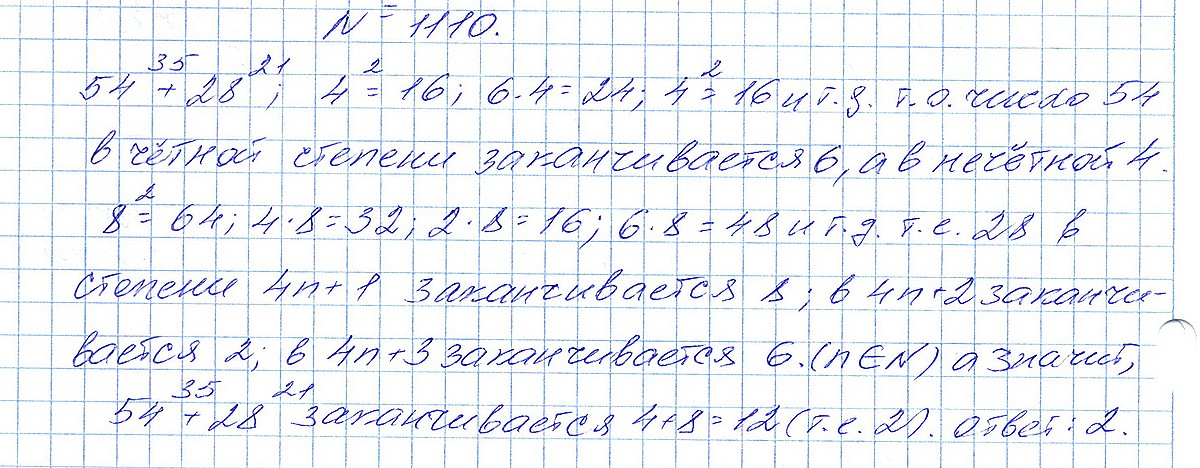 N = 1110.
54³⁵ + 28²¹; 4² = 16; 6·4 = 24; 4² = 16 и т.д. т.о. число 54
в чётной степени заканчивается 6, а в нечётной 4.
8² = 64; 4·8 = 32; 2·8 = 16; 6·8 = 48 и т.д. т.е. 28 в
степени 4n+1 заканчивается 8; в 4n+2 заканчи-
вается 2; в 4n+3 заканчивается 6. (n∈N) а значит,
54³⁵ + 28²¹ заканчивается 4+8=12 (т.е. 2). ответ: 2.